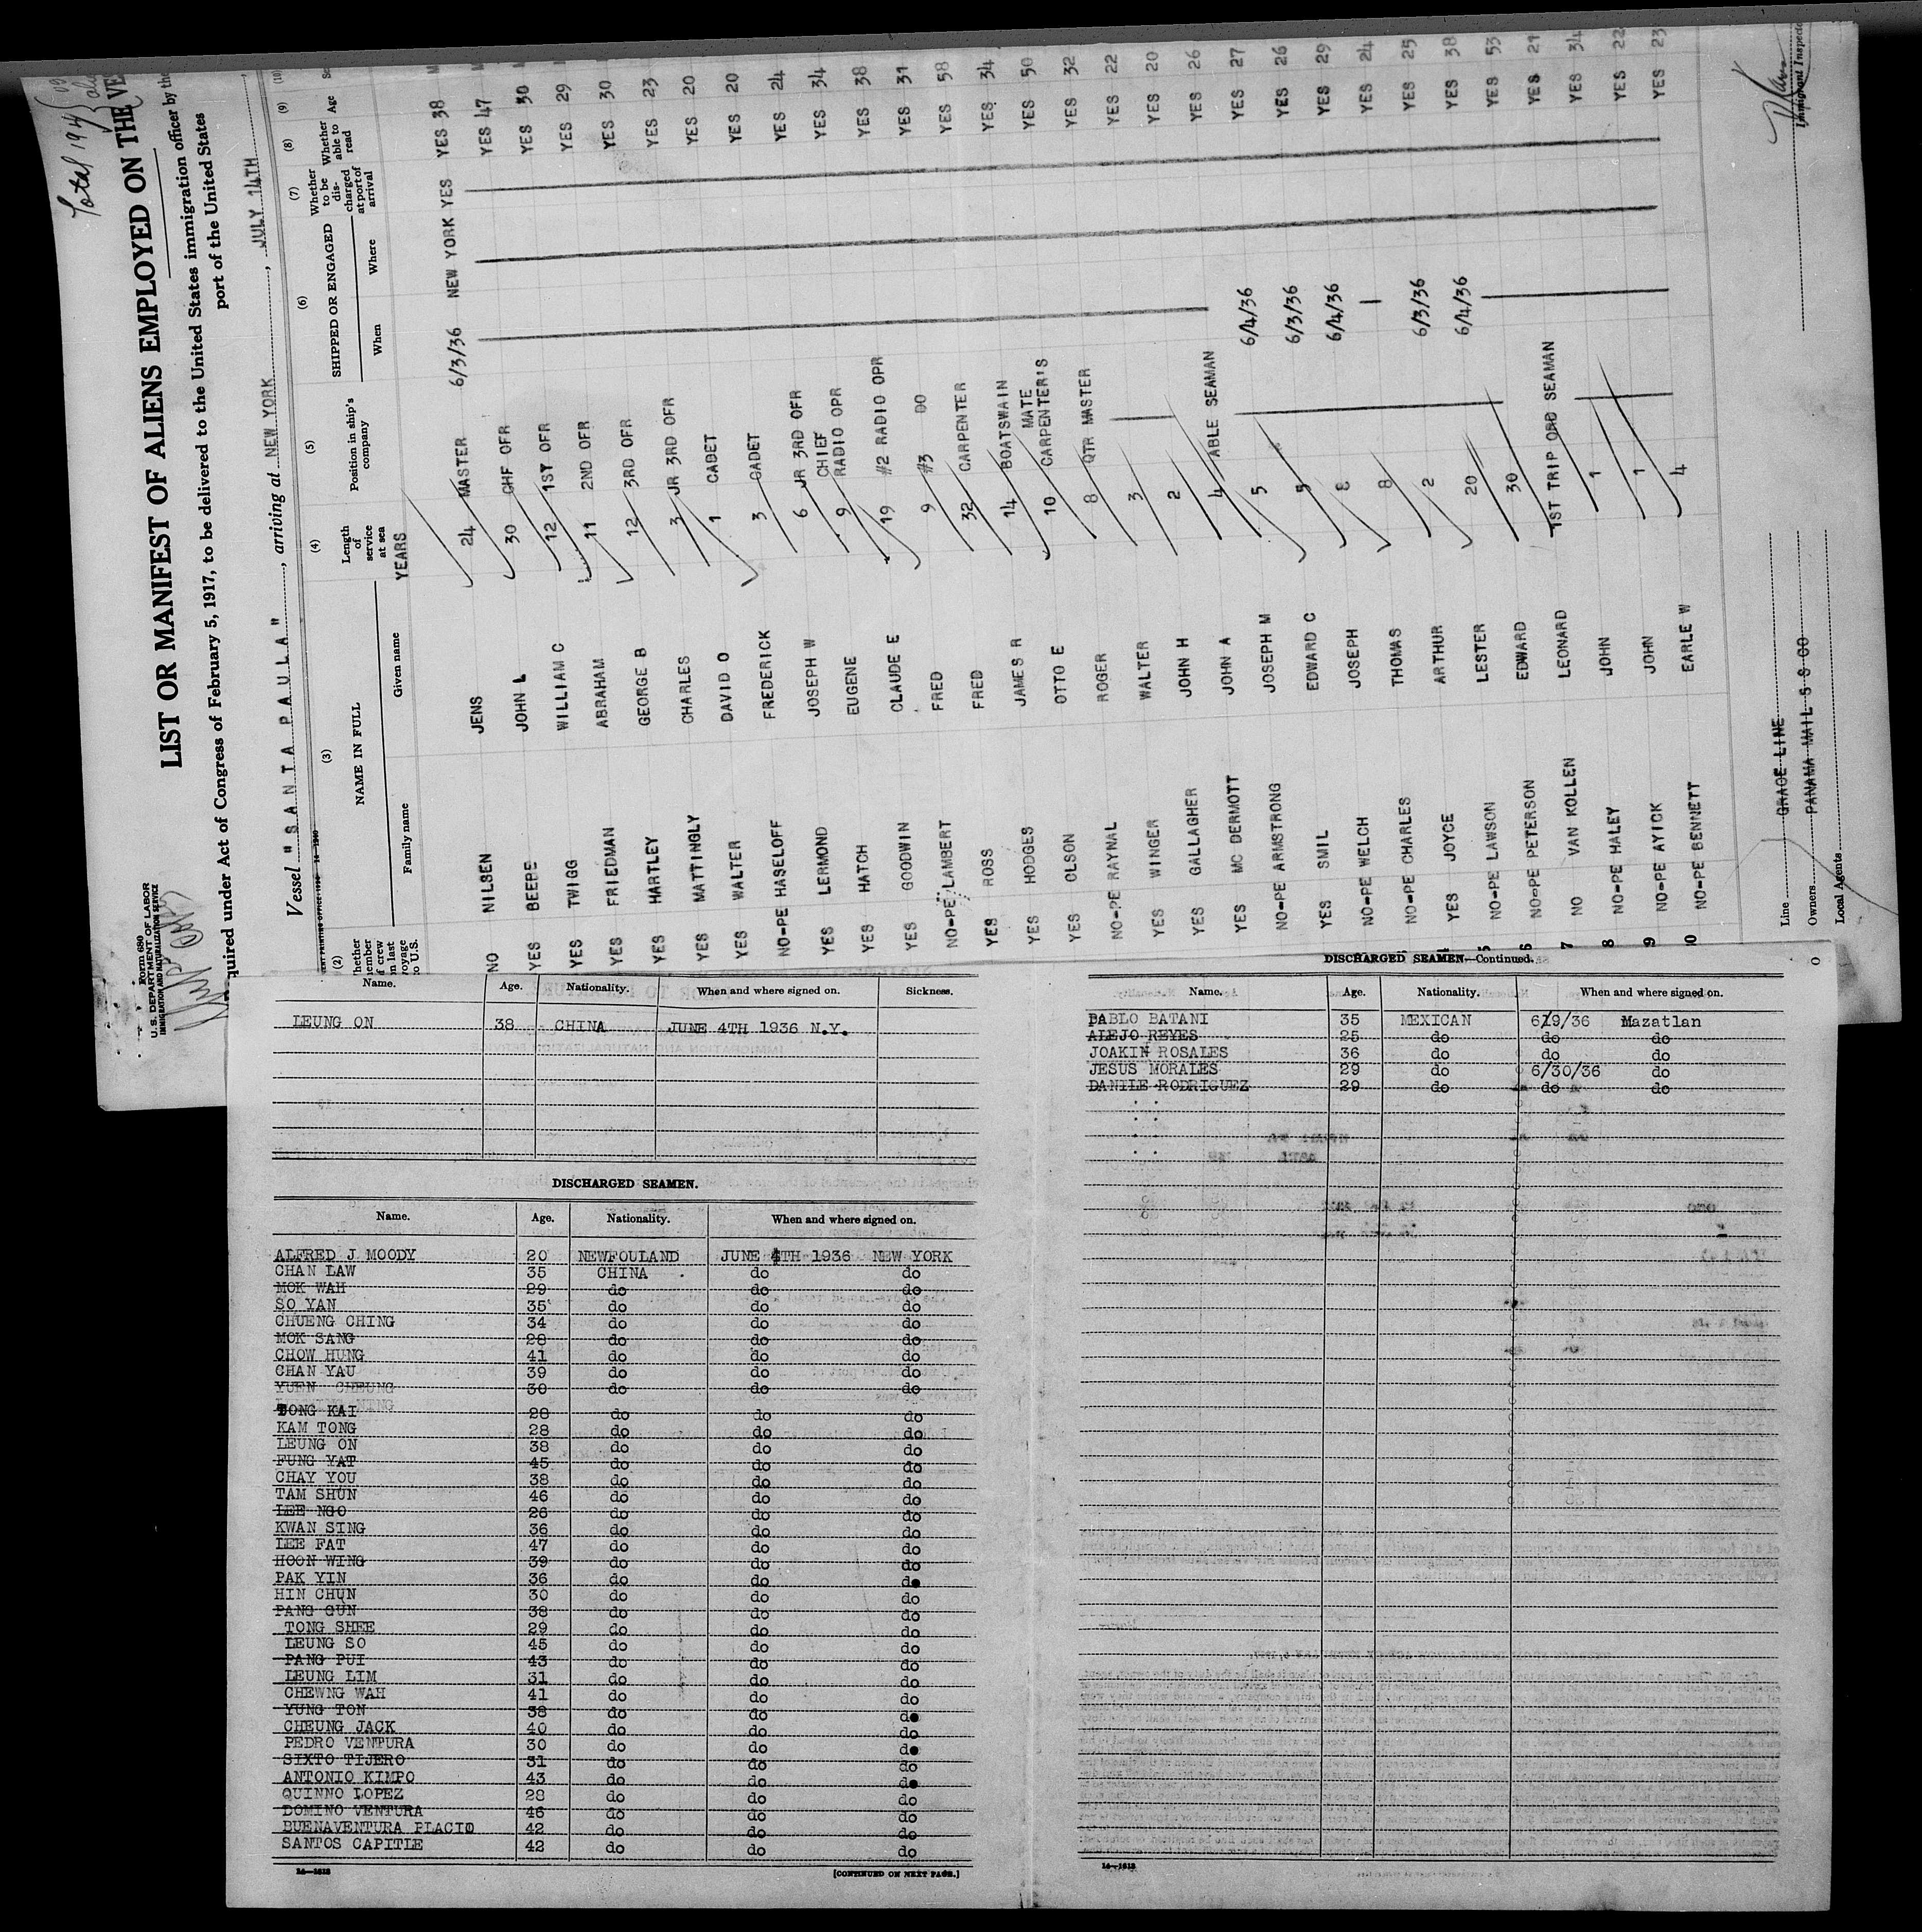 Total 194
Form 680
U. S. DEPARTMENT OF LABOR
IMMIGRATION AND NATURALIZATION SERVICE
LIST OR MANIFEST OF ALIENS EMPLOYED ON THE VE
quired under Act of Congress of February 5, 1917, to be delivered to the United States immigration officer by the
port of the United States
Vessel "SANTA PAULA", arriving at NEW YORK, JULY 14TH
(2) (3) (4) (5) (6) (7) (8) (9) (10)
hether ember f crew n last oyage o U.S. NAME IN FULL Length of service at sea Position in ship's company SHIPPED OR ENGAGED Whether to be dis-charged at port of arrival Whether able to read Age
Family name Given name YEARS When Where
NO NILSEN JENS 24 MASTER 6/3/36 NEW YORK YES YES 38
YES BEEBE JOHN L 30 CHF OFR YES 47
YES TWIGG WILLIAM C 12 1ST OFR YES 30
YES FRIEDMAN ABRAHAM 11 2ND OFR YES 29
YES HARTLEY GEORGE B 12 3RD OFR YES 30
YES MATTINGLY CHARLES 3 JR 3RD OFR YES 23
YES WALTER DAVID O 1 CADET YES 20
NO-PE HASELOFF FREDERICK 3 CADET YES 20
YES LERMOND JOSEPH W 6 JR 3RD OFR YES 24
YES HATCH EUGENE 9 CHIEF RADIO OPR YES 34
YES GOODWIN CLAUDE E 19 #2 RADIO OPR YES 38
NO-PE LAMBERT FRED 9 #3 DO YES 31
YES ROSS FRED 32 CARPENTER YES 58
YES HODGES JAMES R 14 BOATSWAIN YES 34
YES OLSON OTTO E 10 MATE CARPENTER'S YES 50
NO-PE RAYNAL ROGER 8 QTR MASTER YES 32
YES WINGER WALTER 3 YES 22
YES GALLAGHER JOHN H 2 YES 20
YES MC DERMOTT JOHN A 4 ABLE SEAMAN YES 26
NO-PE ARMSTRONG JOSEPH M 5 6/4/36 YES 27
YES SMIL EDWARD C 5 6/3/36 YES 26
NO-PE WELCH JOSEPH 8 6/4/36 YES 29
NO-PE CHARLES THOMAS 8 YES 24
4 YES JOYCE ARTHUR 2 6/3/36 YES 25
5 NO-PE LAWSON LESTER 20 6/4/36 YES 38
6 NO-PE PETERSON EDWARD 30 YES 53
7 NO VAN KOLLEN LEONARD 1ST TRIP ORD SEAMAN YES 21
8 NO-PE HALEY JOHN 1 YES 34
9 NO-PE AYICK JOHN 1 YES 22
0 NO-PE BENNETT EARLE W 4 YES 23
Line GRACE LINE
Owners PANAMA MAIL S S CO
Local Agents
Immigrant Inspector
Name. Age. Nationality. When and where signed on. Sickness.
LEUNG ON 38 CHINA JUNE 4TH 1936 N.Y.
DISCHARGED SEAMEN.
Name. Age. Nationality. When and where signed on.
ALFRED J MOODY 20 NEWFOULAND JUNE 4TH 1936 NEW YORK
CHAN LAW 35 CHINA do do
MOK WAH 29 do do do
SO YAN 35 do do do
CHUENG CHING 34 do do do
MOK SANG 28 do do do
CHOW HUNG 41 do do do
CHAN YAU 39 do do do
YUEN CHEUNG 30 do do do
TONG KAI 28 do do do
KAM TONG 28 do do do
LEUNG ON 38 do do do
FUNG YAT 45 do do do
CHAY YOU 38 do do do
TAM SHUN 46 do do do
LEE NGO 26 do do do
KWAN SING 36 do do do
LEE FAT 47 do do do
HOON WING 39 do do do
PAK YIN 36 do do do
HIN CHUN 30 do do do
PANG GUN 38 do do do
TONG SHEE 29 do do do
LEUNG SO 45 do do do
PANG PUI 43 do do do
LEUNG LIM 31 do do do
CHEWNG WAH 41 do do do
YUNG TON 38 do do do
CHEUNG JACK 40 do do do
PEDRO VENTURA 30 do do do
SIXTO TIJERO 31 do do do
ANTONIO KIMPO 43 do do do
QUINNO LOPEZ 28 do do do
DOMINO VENTURA 46 do do do
BUENAVENTURA PLACIO 42 do do do
SANTOS CAPITLE 42 do do do
14—1613 [CONTINUED ON NEXT PAGE.]
DISCHARGED SEAMEN—Continued.
Name. Age. Nationality. When and where signed on.
PABLO BATANI 35 MEXICAN 6/19/36 Mazatlan
ALEJO REYES 25 do do do
JOAKIN ROSALES 36 do do do
JESUS MORALES 29 do 6/30/36 do
DANILE RODRIGUEZ 29 do do do
14—1613